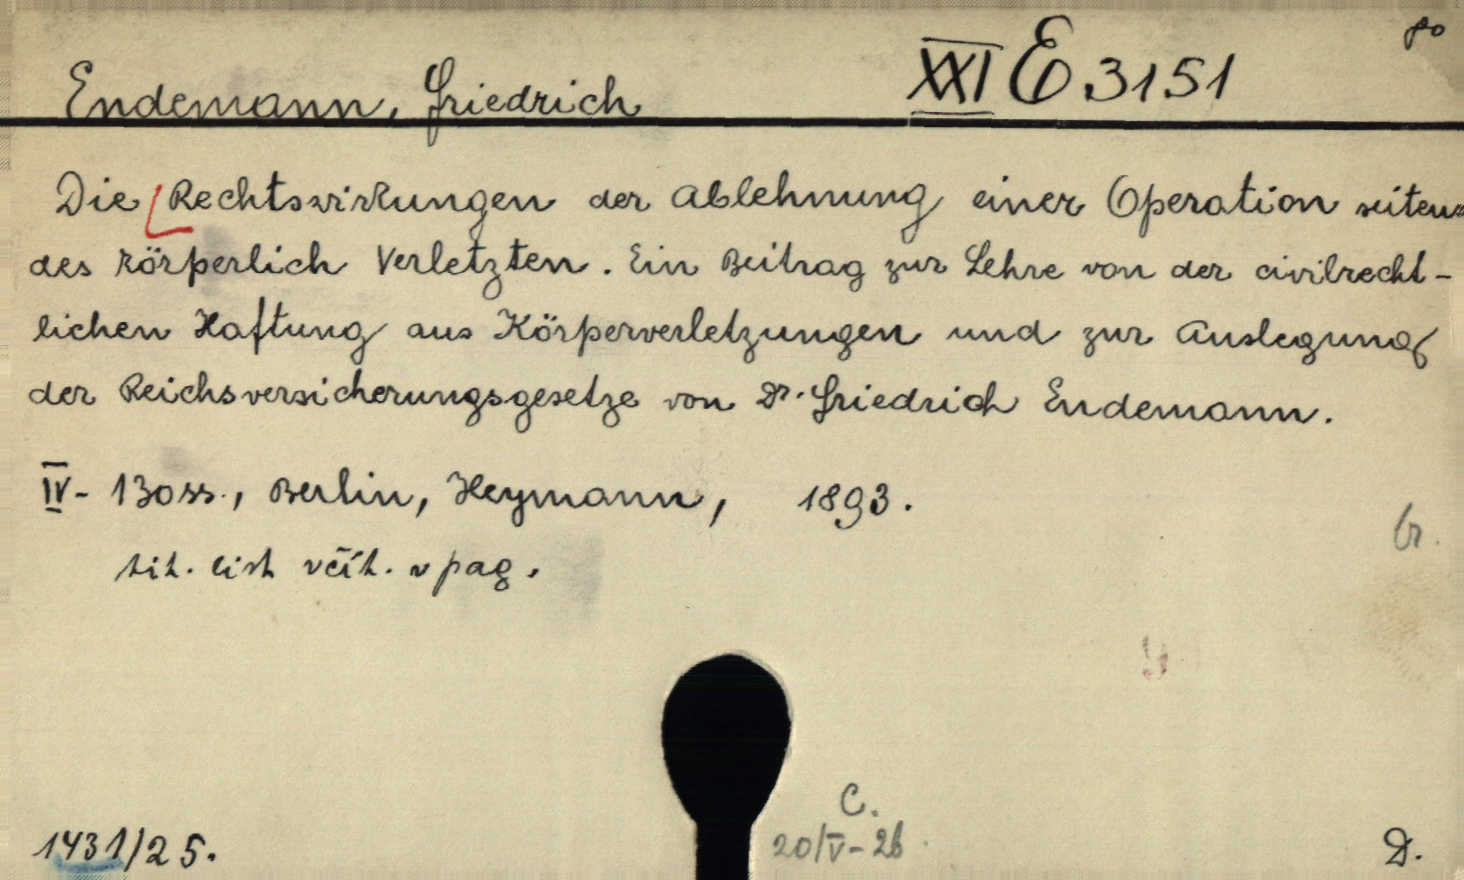 Endemann, Friedrich
XXI E 3151
Die Rechtswirkungen der Ablehnung einer Operation seitens
des körperlich Verletzten. Ein Beitrag zur Lehre von der civilrecht-
lichen Haftung aus Körperverletzungen und zur Auslegung
der Reichsversicherungsgesetze von Dr. Friedrich Endemann.
IV - 130 ss., Berlin, Heymann, 1893.
tit. list včít. v pag.
br.
C.
20/V-26
1431/25.
D.